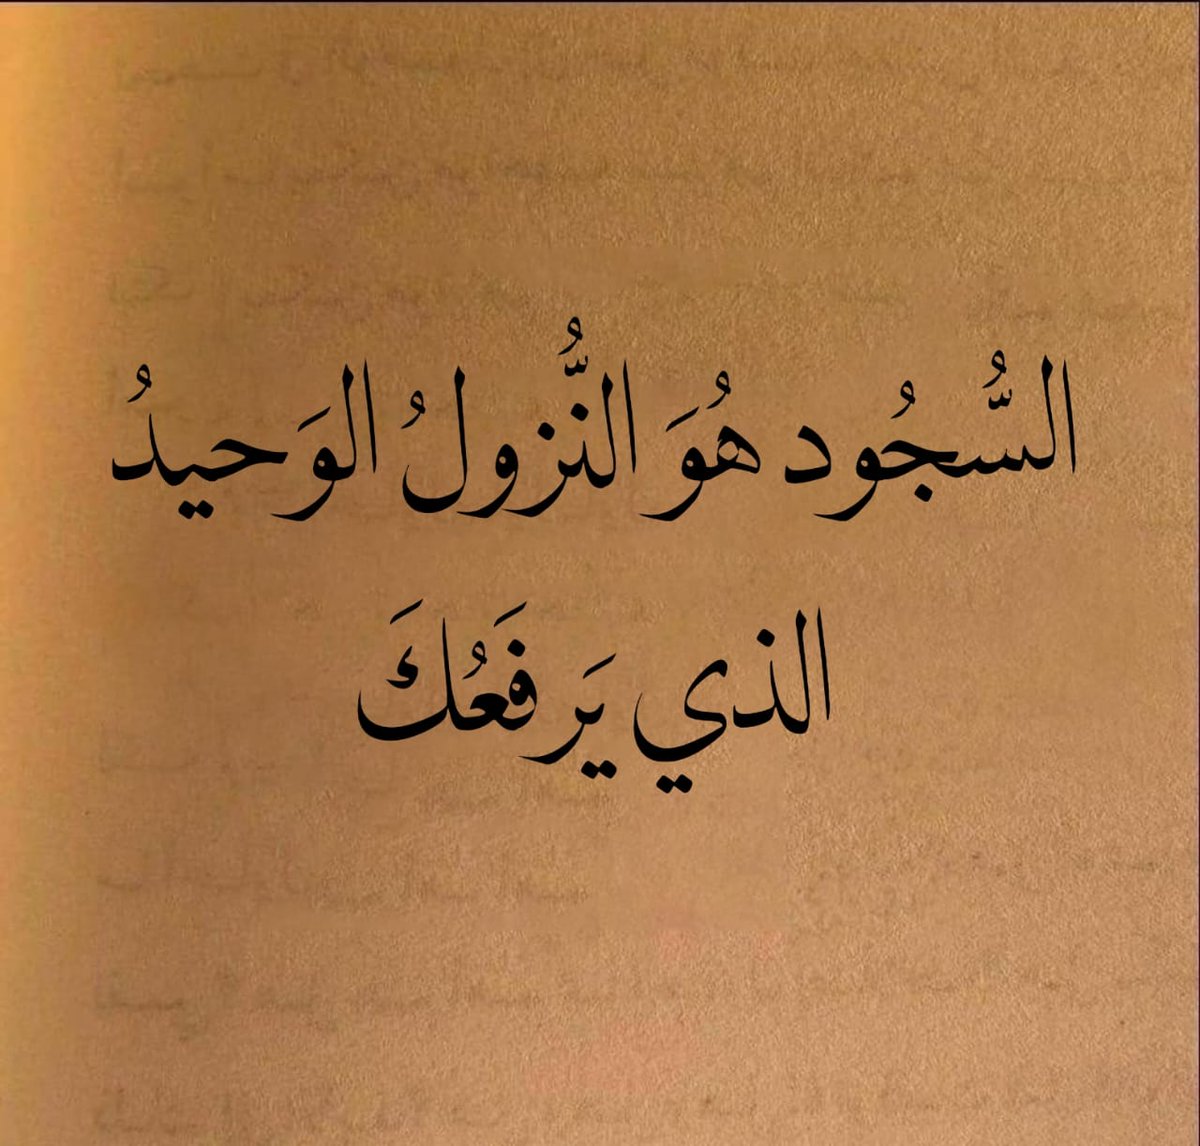 السُّجُود هُوَ النُّزولُ الوَحيدُ
الذي يَرفَعُكَ